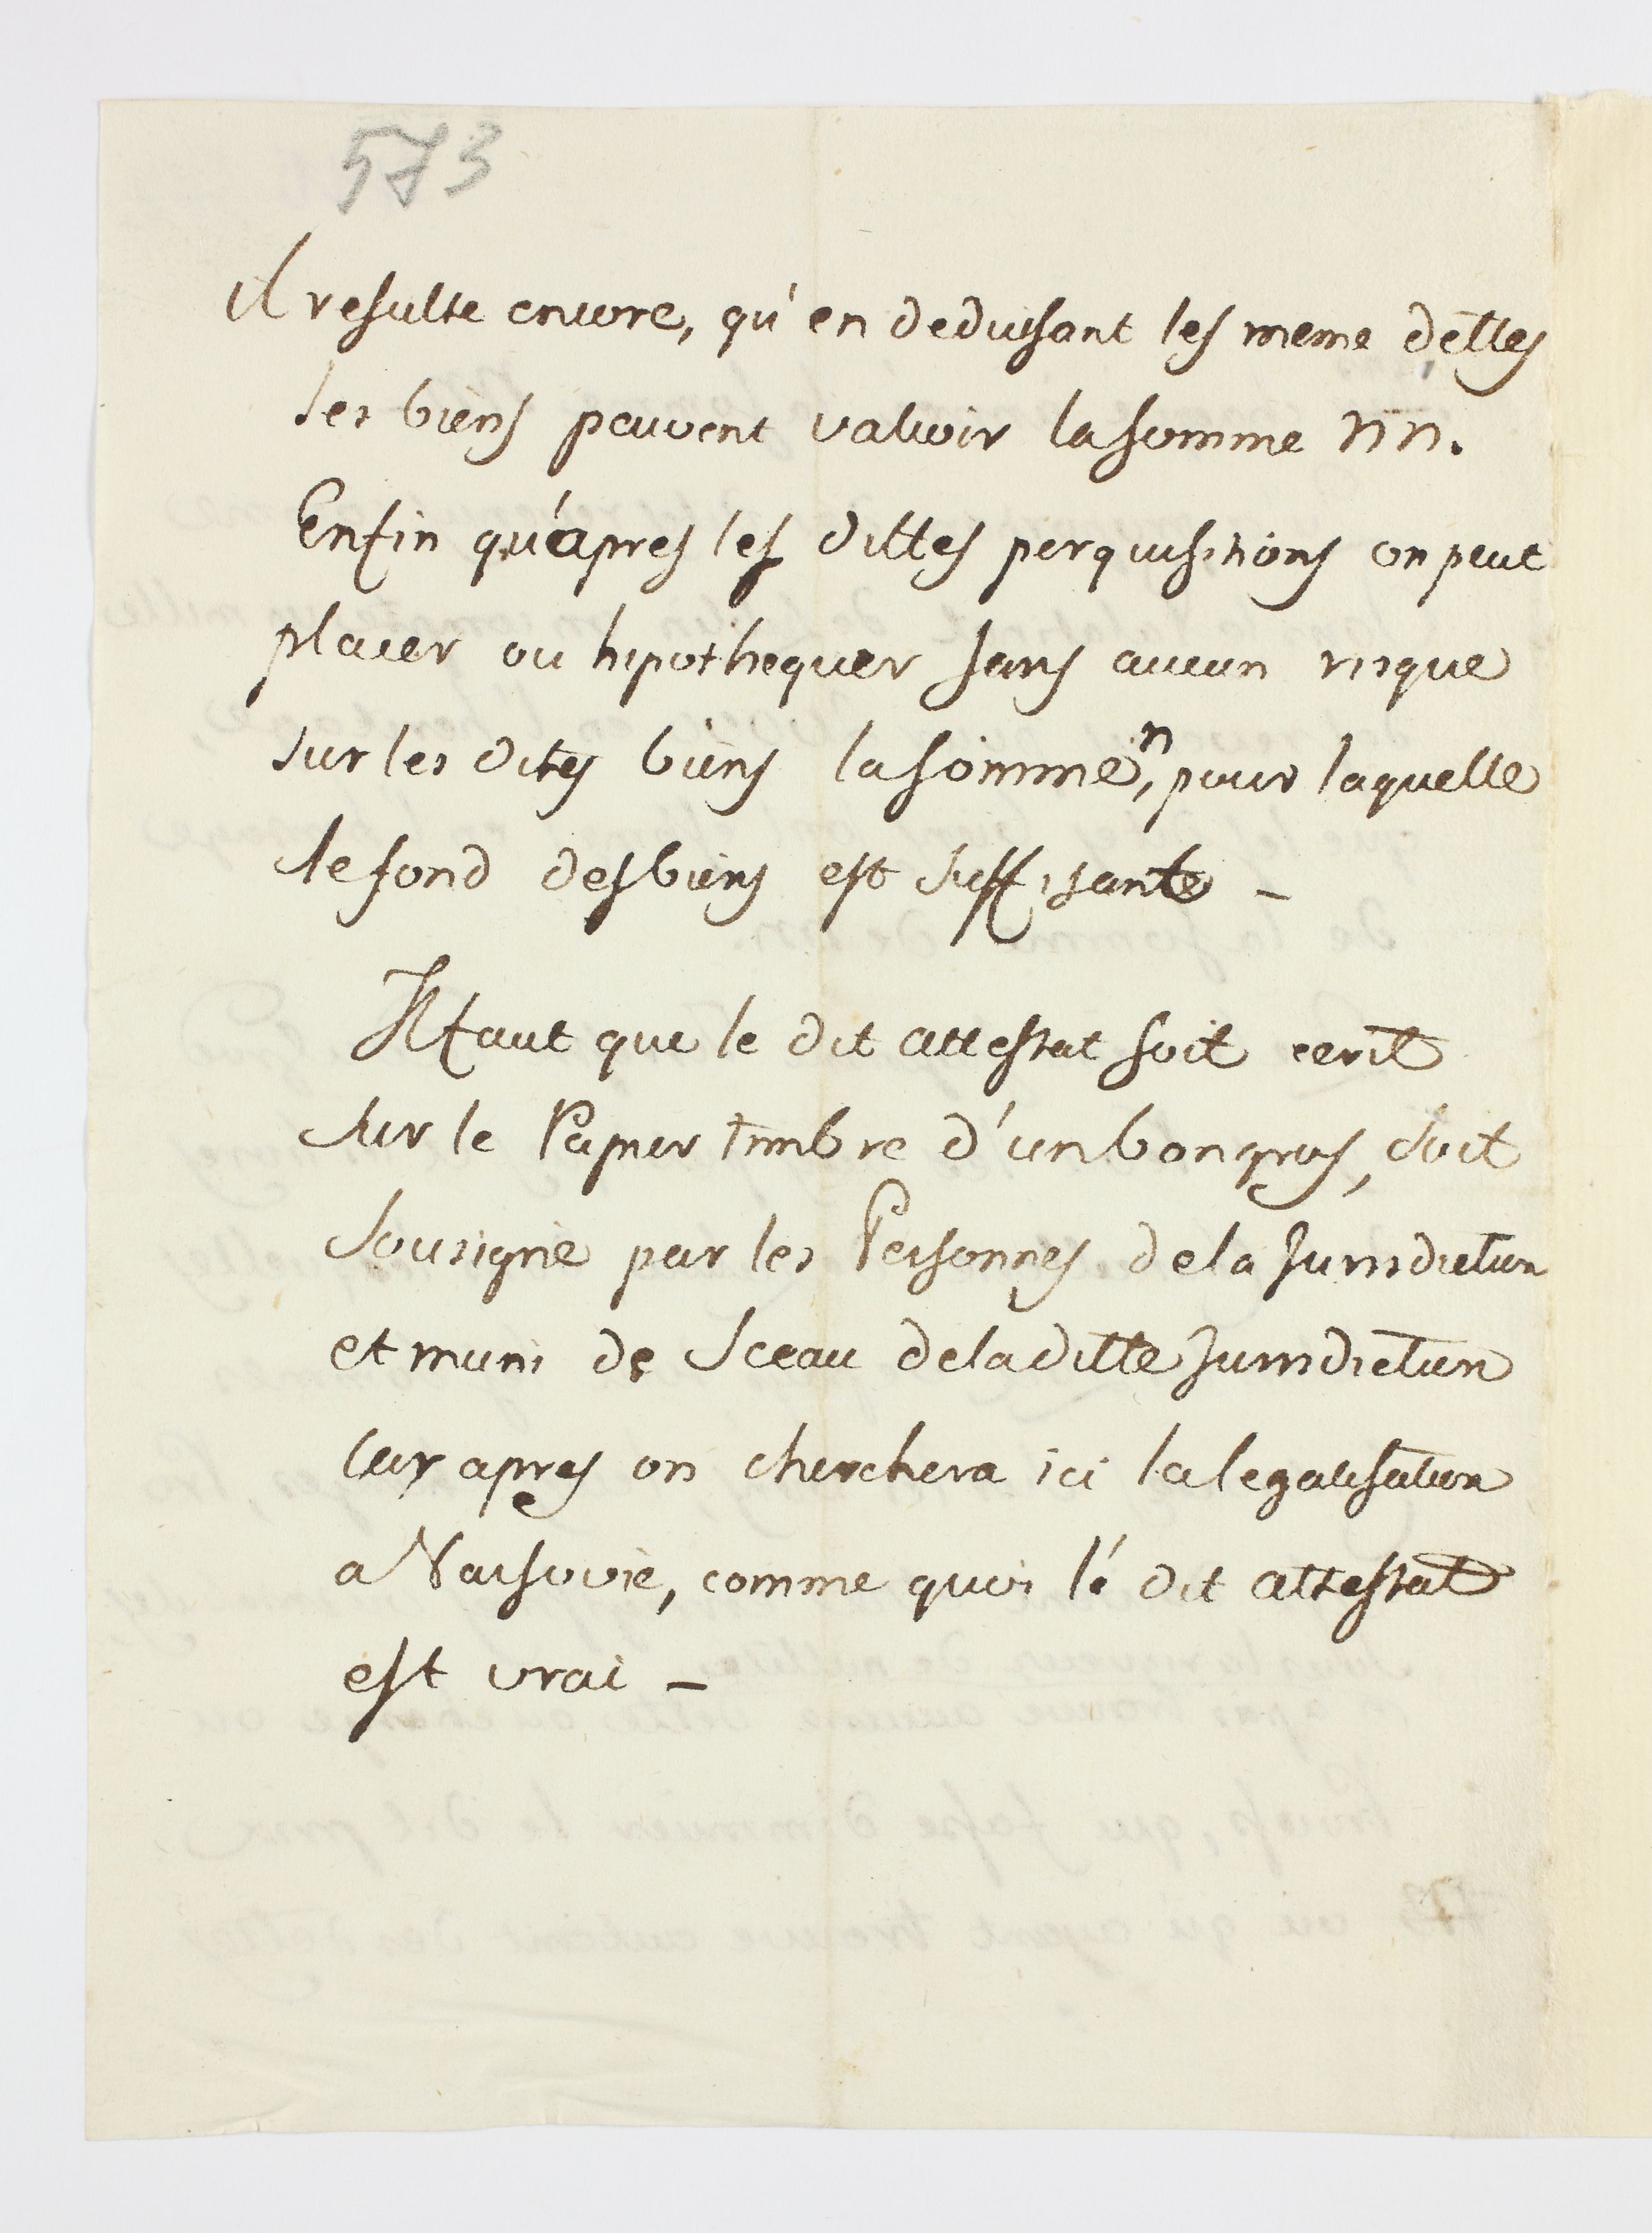 573
il resulte encore, qu'en deduisant les meme dettes
les biens peuvent valuoir la somme nn.
Enfin qu'apres les dittes perquisitions on peut
placer ou hipothequer sans aucun risque
sur les dites biens la somme n, pour laquelle
le fond des biens est suffisante –
Il faut que le dit attestat soit ecrit
sur le Papier timbre d'un bon gros, soit
sousigné par les Personnes de la Jurisdiction
et muni de Sceau de la ditte Jurisdiction
car apres on cherchera ici la legalisation
a Varsovie, comme quoi le dit attestat
est vrai –